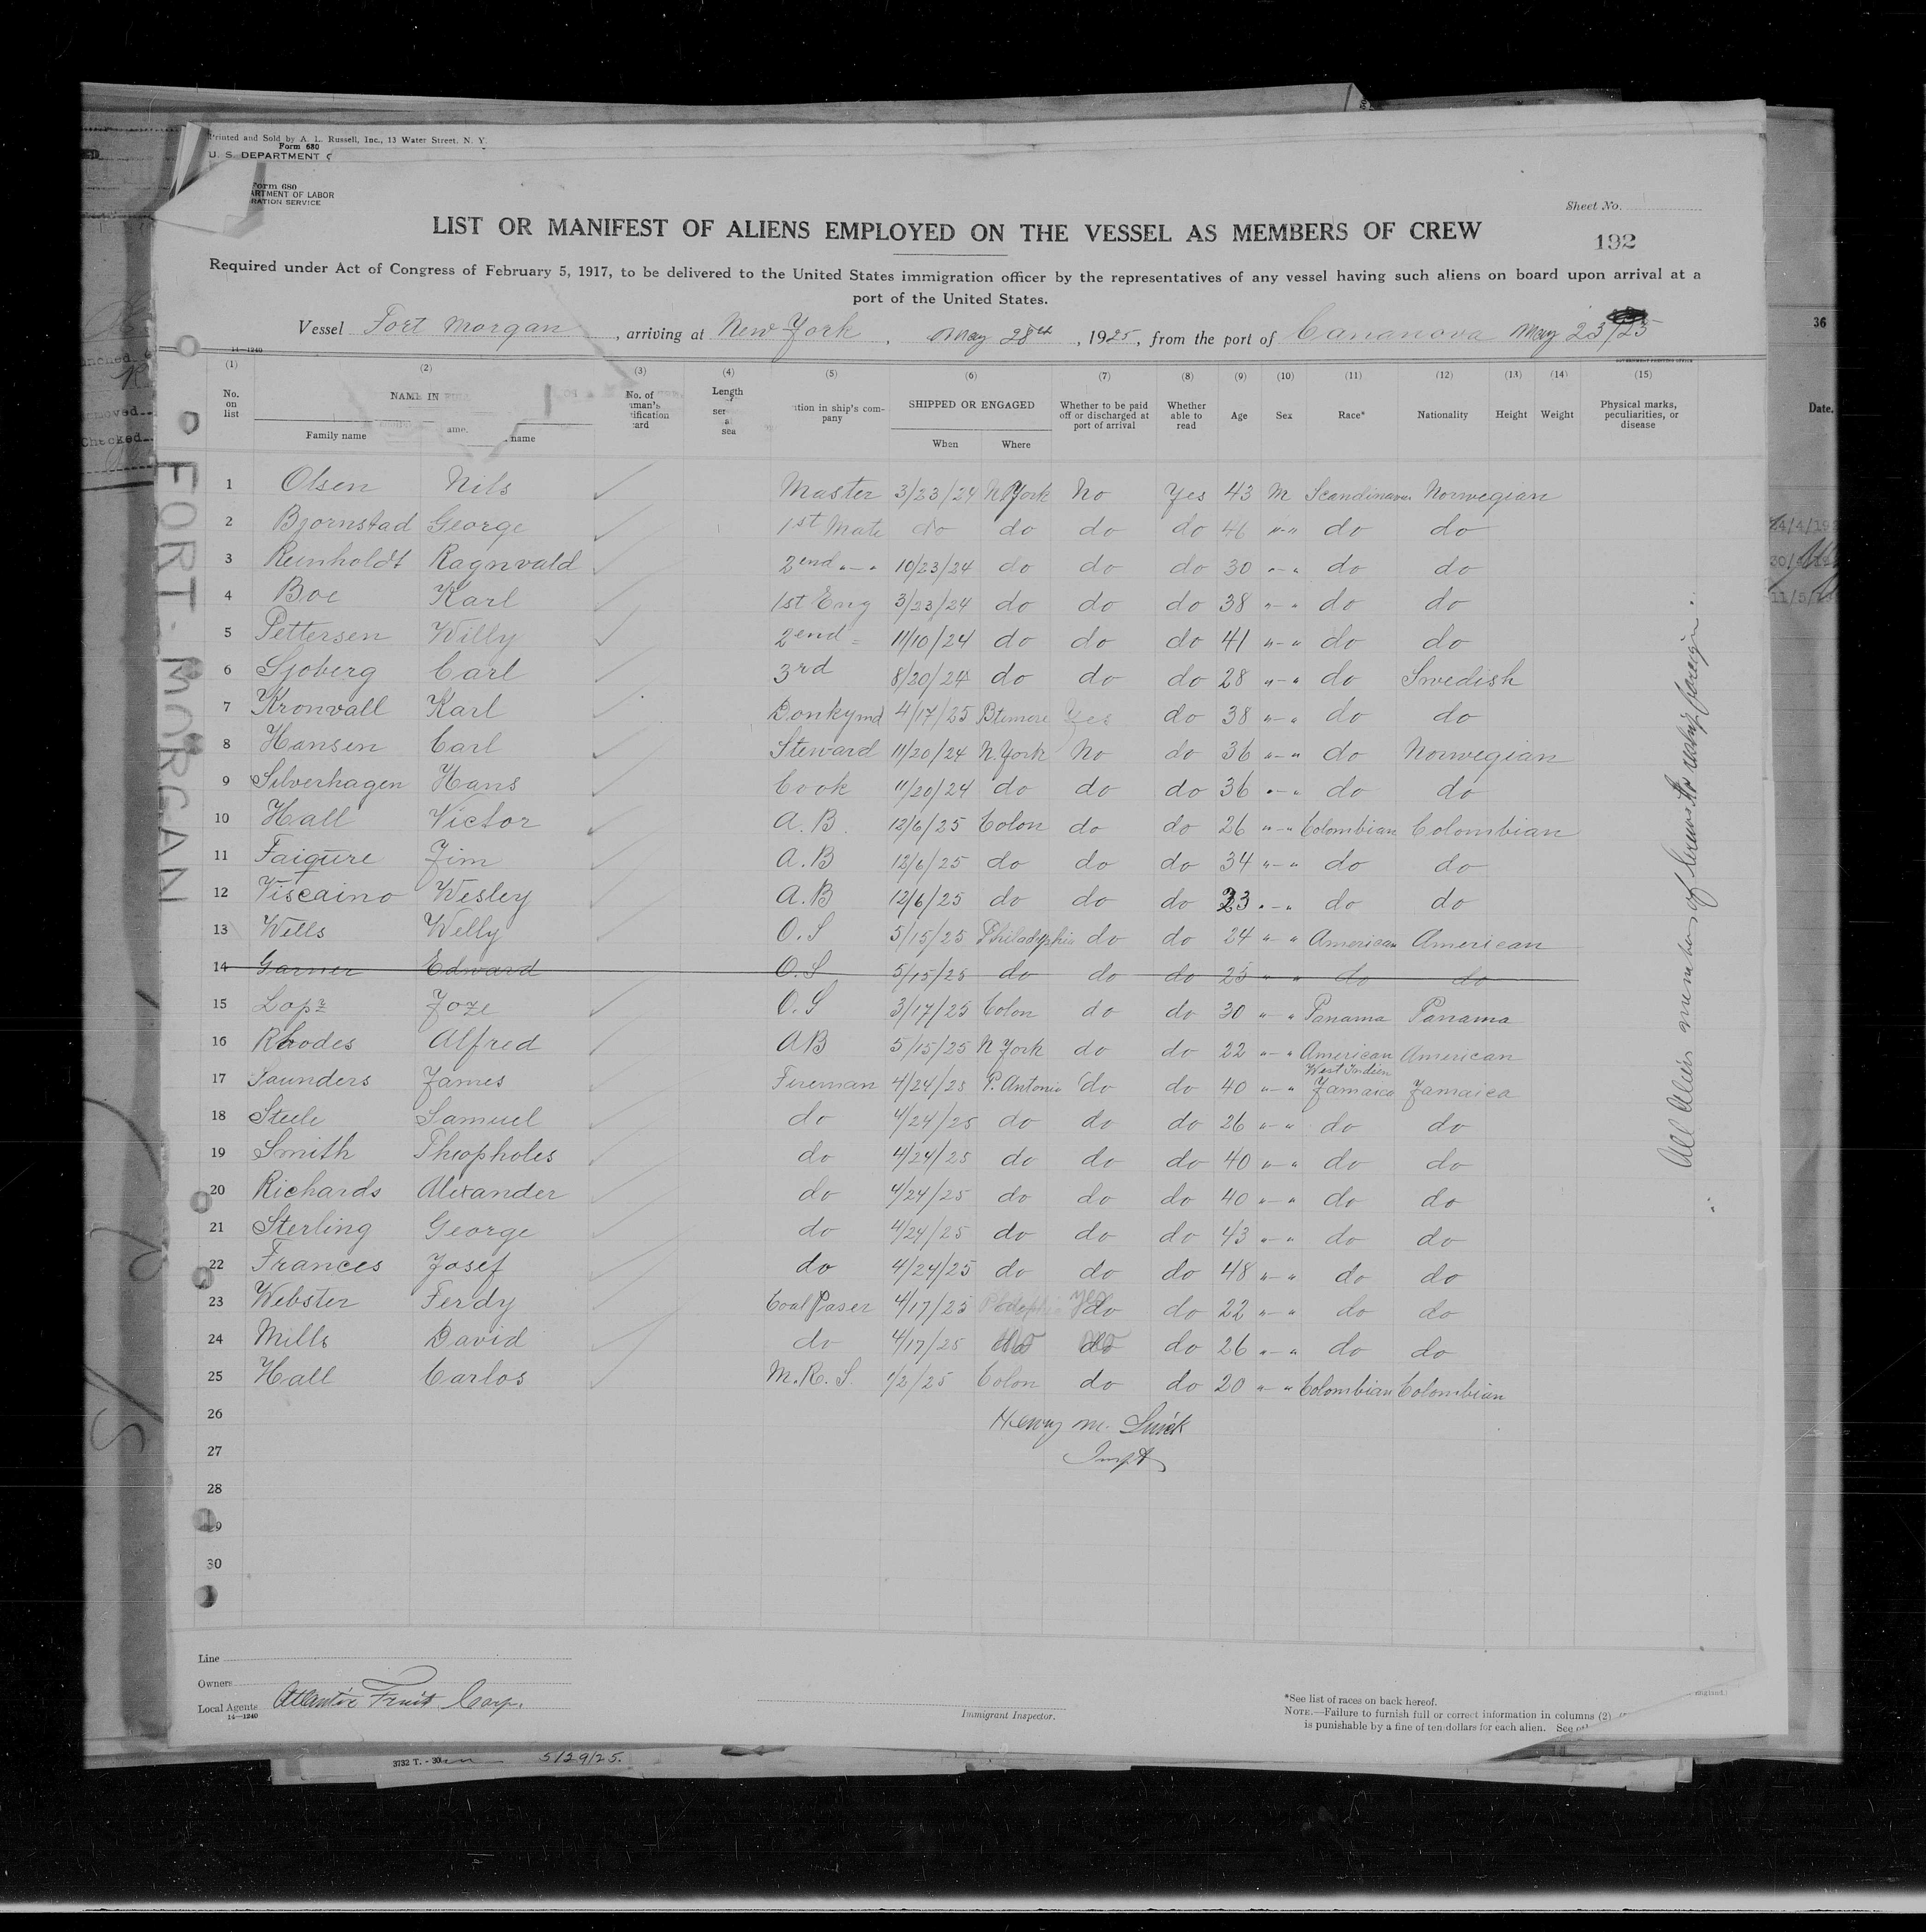 Printed and Sold by A. L. Russell, Inc., 13 Water Street, N. Y.
Form 680
U. S. DEPARTMENT
Form 680
ARTMENT OF LABOR
RATION SERVICE
Sheet No.
LIST OR MANIFEST OF ALIENS EMPLOYED ON THE VESSEL AS MEMBERS OF CREW
192
Required under Act of Congress of February 5, 1917, to be delivered to the United States immigration officer by the representatives of any vessel having such aliens on board upon arrival at a
port of the United States.
Vessel Fort Morgan, arriving at New York, May 28th, 1925, from the port of Cananova May 23/25
14—1240
(1) (2) (3) (4) (5) (6) (7) (8) (9) (10) (11) (12) (13) (14) (15)
No. on list NAME IN FULL No. of Length SHIPPED OR ENGAGED Whether to be paid off or discharged at port of arrival Whether able to read Age Sex Race* Nationality Height Weight Physical marks, peculiarities, or disease
Family name name When Where
1 Olsen Nils Master 3/23/24 N York No Yes 43 M Scandinavian Norwegian
2 Bjornstad George 1st Mate do do do do 46 " - " do do
3 Reinholdt Ragnvald 2end " - " 10/23/24 do do do 30 " - " do do
4 Boe Karl 1st Eng 3/23/24 do do do 38 " - " do do
5 Pettersen Willy 2end = 11/10/24 do do do 41 " - " do do
6 Sjoberg Carl 3rd 8/20/24 do do do 28 " - " do Swedish
7 Kronvall Karl Donkymd 4/17/25 Btemore Yes do 38 " - " do do
8 Hansen Carl Steward 11/20/24 N. York No do 36 " - " do Norwegian
9 Silverhagen Hans Cook 11/20/24 do do do 36 " - " do do
10 Hall Victor A. B. 12/6/25 Colon do do 26 " - " Colombian Colombian
11 Faigure Jim A. B 12/6/25 do do do 34 " - " do do
12 Viscaino Wesley A. B 12/6/25 do do do 23 " - " do do
13 Wells Welly O. S 5/15/25 Philadephia do do 24 " - " American American
14 Garner Edward O. S 5/15/25 do do do 25 " " do do
15 Lopz Joze O. S 3/17/25 Colon do do 30 " - " Panama Panama
16 Rhodes Alfred AB 5/15/25 N York do do 22 " - " American American
17 Saunders James Fireman 4/24/25 P. Antonio do do 40 " - " West Indien Jamaica Jamaica
18 Steele Samuel do 4/24/25 do do do 26 " - " do do
19 Smith Theopholes do 4/24/25 do do do 40 " - " do do
20 Richards Alexander do 4/24/25 do do do 40 " - " do do
21 Sterling George do 4/24/25 do do do 43 " - " do do
22 Frances Josef do 4/24/25 do do do 48 " - " do do
23 Webster Ferdy Coal Paser 4/17/25 do do 22 " - " do do
24 Mills David do 4/17/25 do do do 26 " - " do do
25 Hall Carlos M. R. S. 1/2/25 Colon do do 20 " - " Colombian Colombian
26 Henry M.
27 Inspt
28
29
30
FORT MORGAN
All Alien members of crew to reship foreign.
Line
Owners
Local Agents Atlantic Fruit Corp.
14—1240
Immigrant Inspector.
*See list of races on back hereof.
NOTE.—Failure to furnish full or correct information in columns (2)
is punishable by a fine of ten dollars for each alien. See
3732 T. - 30 5/29/25.
36
Date.
Checked